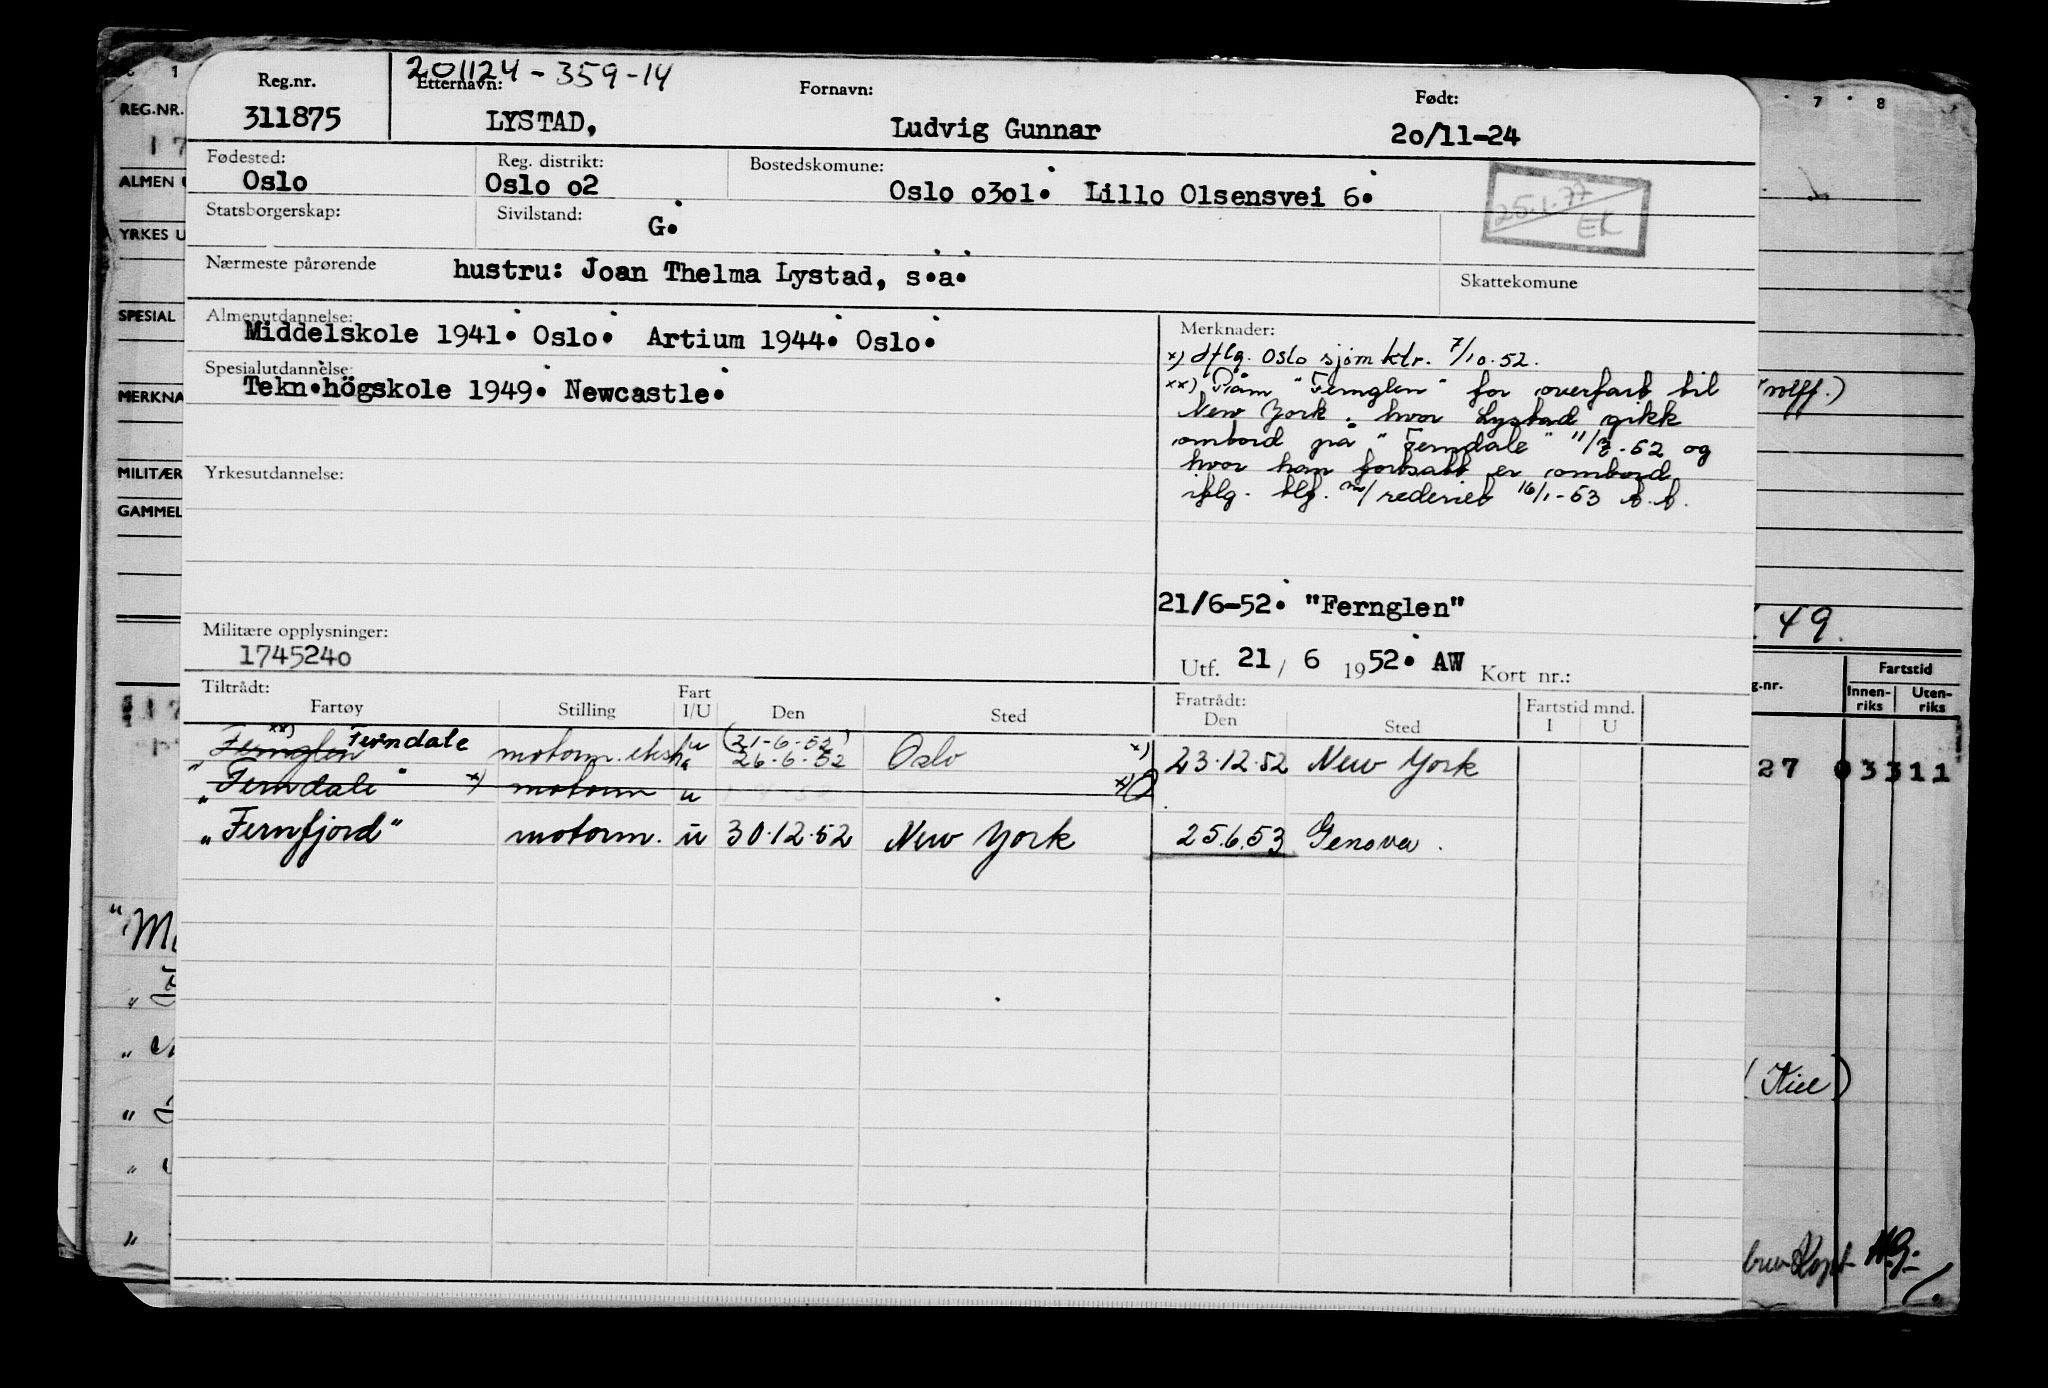 201124-359-14
Reg.nr. Etternavn: Fornavn: Født:
311875 LYSTAD, Ludvig Gunnar 20/11-24
Fødested: Reg. distrikt: Bostedskomune:
Oslo Oslo 02 Oslo 0301. Lillo Olsensvei 6.
Statsborgerskap: Sivilstand: G.
25.1.77
EK
Nærmeste pårørende hustru: Joan Thelma Lystad, s.a.
Skattekomune
Almenutdannelse:
Middelskole 1941. Oslo. Artium 1944. Oslo.
Spesialutdannelse:
Tekn.högskole 1949. Newcastle.
Yrkesutdannelse:
Merknader:
x) Iflg. Oslo sjøm ktr. 7/10.52.
xx) Påm "Fernglen" for overfart til
New York, hvor Lystad gikk
ombord på "Ferndale" 11/7-52 og
hvor han fortsatt er ombord
iflg. tlf. m/rederiet 16/1-53
21/6-52. "Fernglen"
Militære opplysninger:
1745240
Utf. 21 / 6 1952. AW Kort nr.:
Tiltrådt: Fratrådt:
Fartøy Stilling Fart I/U Den Sted Den Sted Fartstid mnd. I U
xx)
Fernglen Ferndale motorm. u (21-6-52) 26-6-52 Oslo x) 23.12.52 New York
"Ferndale" x) motorm u x)
"Fernfjord" motorm. u 30.12.52 New York 25.6.53 Genova.
1
REG.NR.
17
ALMEN
YRKES U
SPESIAL
MERKNA
MILITÆR
GAMMEL
7 8
49.
g.nr. Fartstid
Innen-riks Uten-riks
27 03311
(Kiel)
H.G.